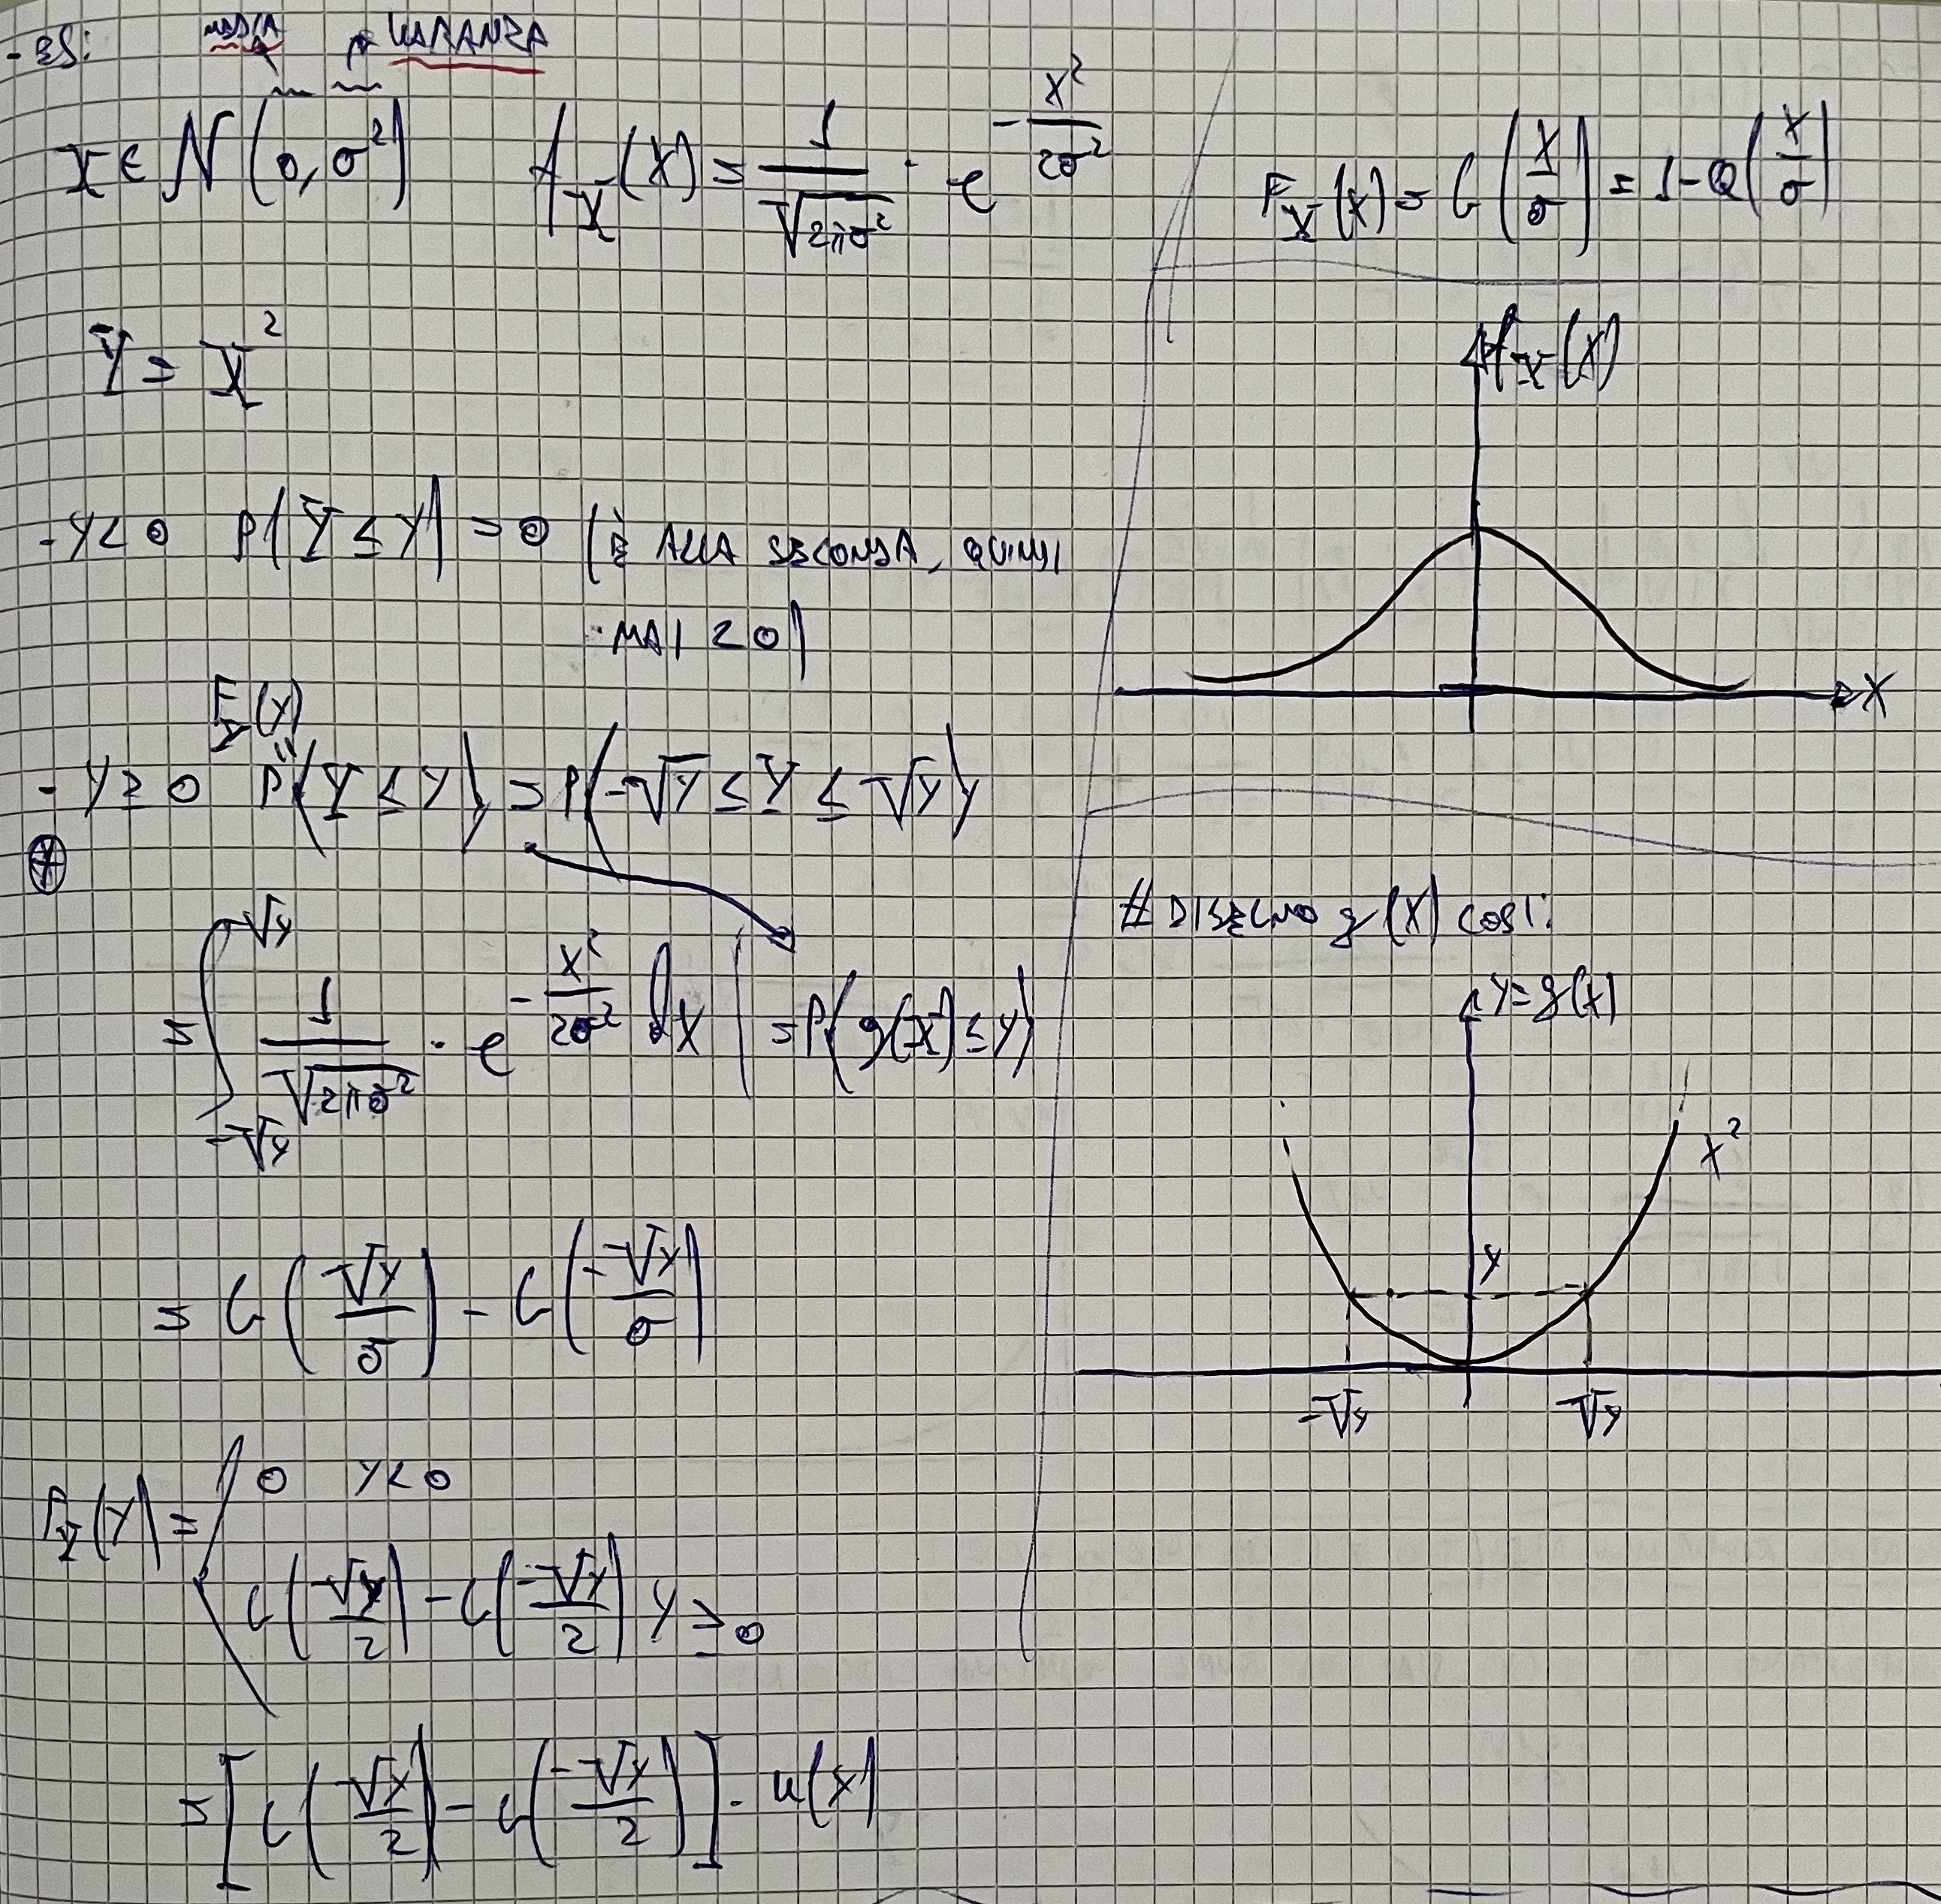 - ES: MEDIA VARIANZA
X ∈ N(0, σ²) f_X(x) = 1/√(2πσ²) · e^(-x²/2σ²)
Y = X²
- y < 0 P(Y ≤ y) = 0 (È ALLA SECONDA, QUINDI
MAI < 0)
F_Y(y)
"
- y ≥ 0 P(Y ≤ y) = P(-√y ≤ Y ≤ √y)
= ∫_{-√y}^{√y} 1/√(2πσ²) · e^(-x²/2σ²) dx | = P(g(X) ≤ y)
= G(√y/σ) - G(-√y/σ)
F_Y(y) = { 0 y < 0
G(√y/2) - G(-√y/2) y ≥ 0
= [G(√y/2) - G(-√y/2)] · u(x)
F_X(x) = G(x/σ) = 1 - Q(x/σ)
f_X(x)
x
# DISEGNO g(x) COSÌ:
y = g(x)
x²
y
-√y √y